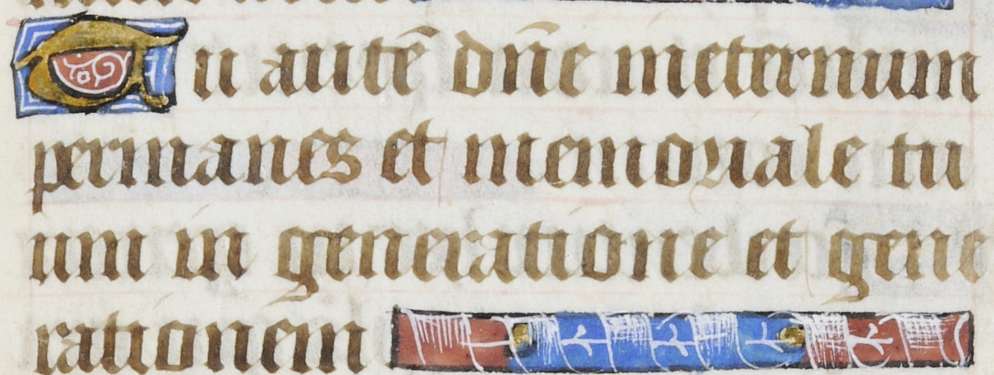 Tu autē dñe ineternum
permanes et memoriale tu
um in generatione et gene
rationem